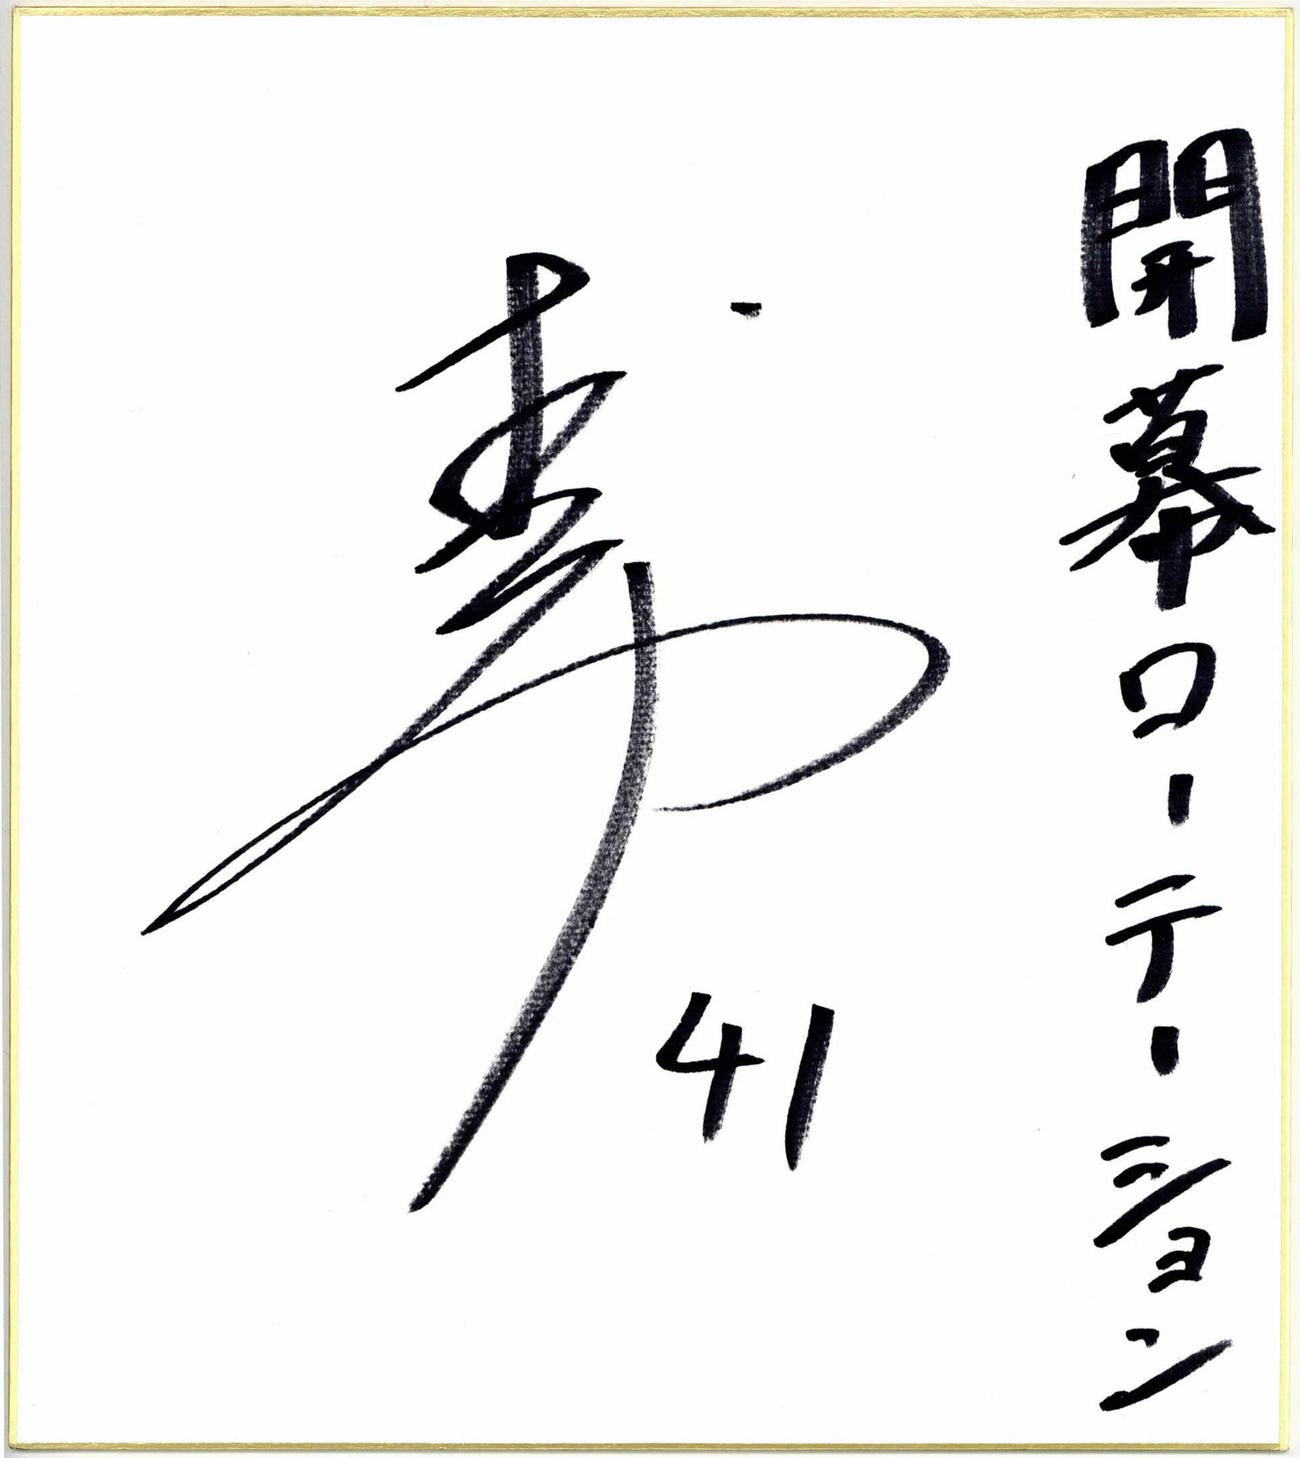 開幕ローテーション
41